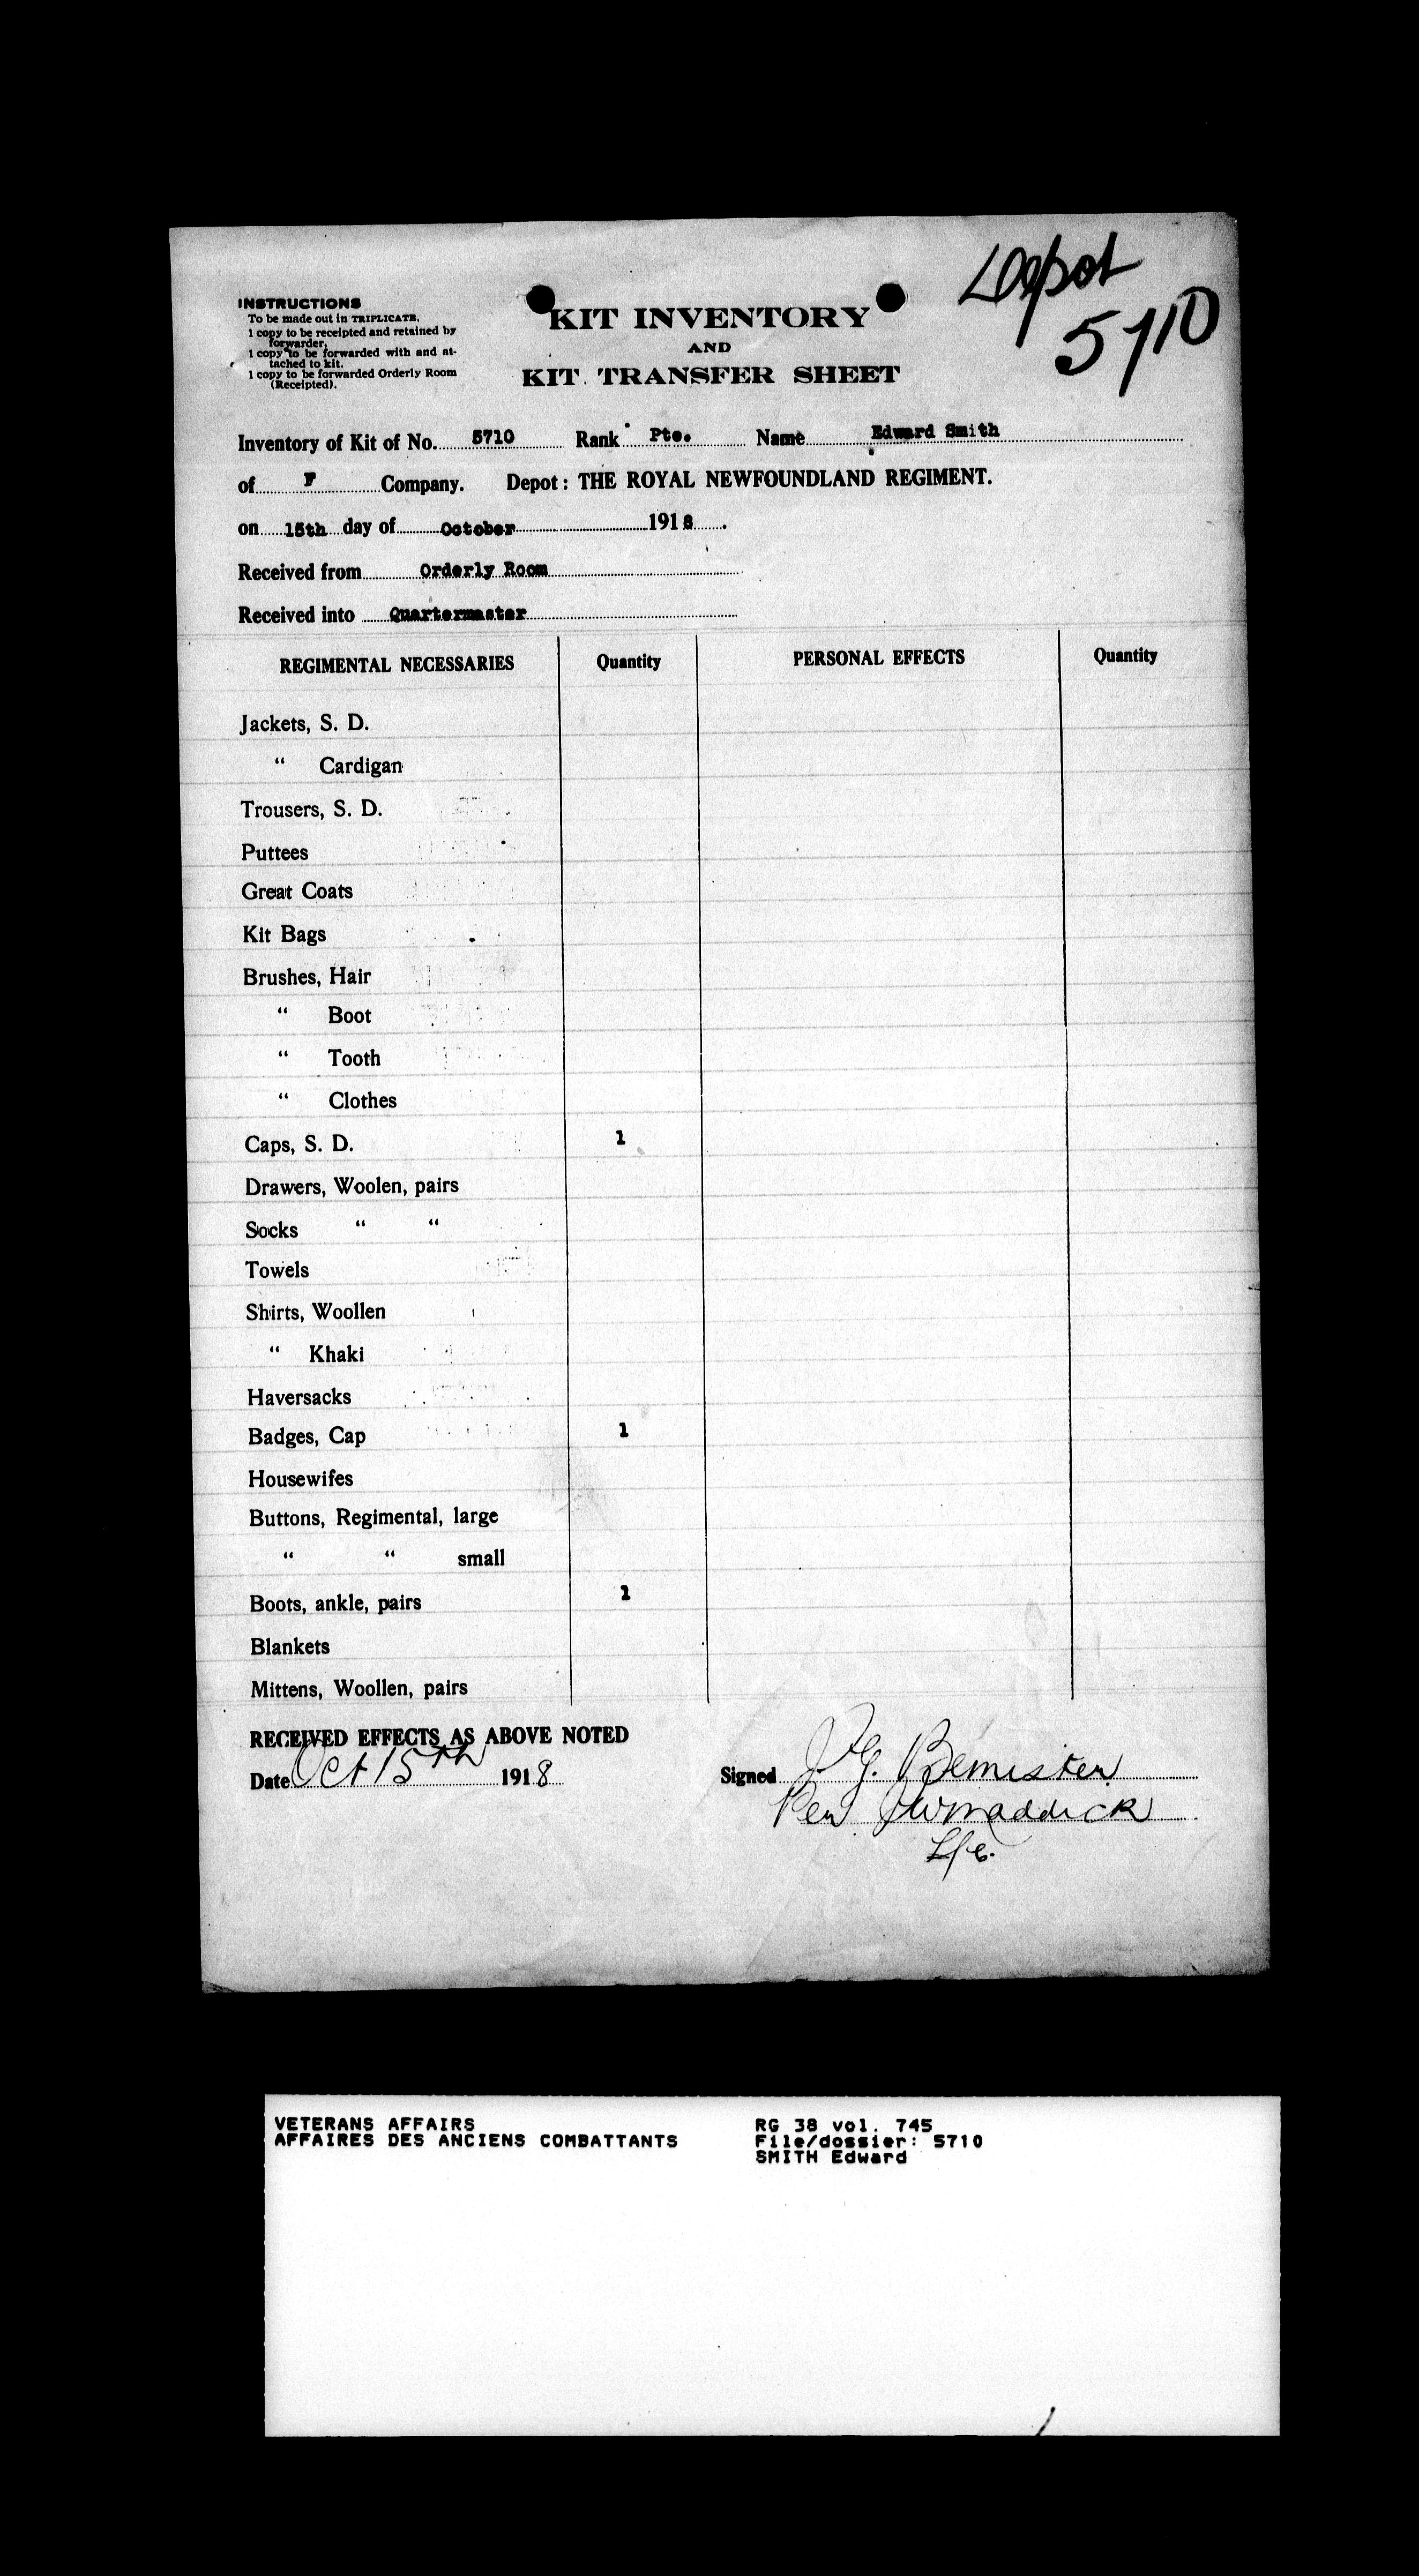 Depot
5710
INSTRUCTIONS
To be made out in TRIPLICATE.
1 copy to be receipted and retained by
forwarder.
1 copy to be forwarded with and at-
tached to kit.
1 copy to be forwarded Orderly Room
(Receipted).
KIT INVENTORY
AND
KIT TRANSFER SHEET
Inventory of Kit of No. 5710 Rank Pte. Name Edward Smith
of F Company. Depot: THE ROYAL NEWFOUNDLAND REGIMENT.
on 15th day of October 1918.
Received from Orderly Room
Received into Quartermaster
REGIMENTAL NECESSARIES Quantity PERSONAL EFFECTS Quantity
Jackets, S. D.
“ Cardigan
Trousers, S. D.
Puttees
Great Coats
Kit Bags
Brushes, Hair
“ Boot
“ Tooth
“ Clothes
Caps, S. D. 1
Drawers, Woolen, pairs
Socks “ “
Towels
Shirts, Woollen
“ Khaki
Haversacks
Badges, Cap 1
Housewifes
Buttons, Regimental, large
“ “ small
Boots, ankle, pairs 1
Blankets
Mittens, Woollen, pairs
RECEIVED EFFECTS AS ABOVE NOTED
Date Oct 15th 1918 Signed J. G. Bemister
Per Maddick
L/c.
VETERANS AFFAIRS
AFFAIRES DES ANCIENS COMBATTANTS
RG 38 vol. 745
File/dossier: 5710
SMITH Edward